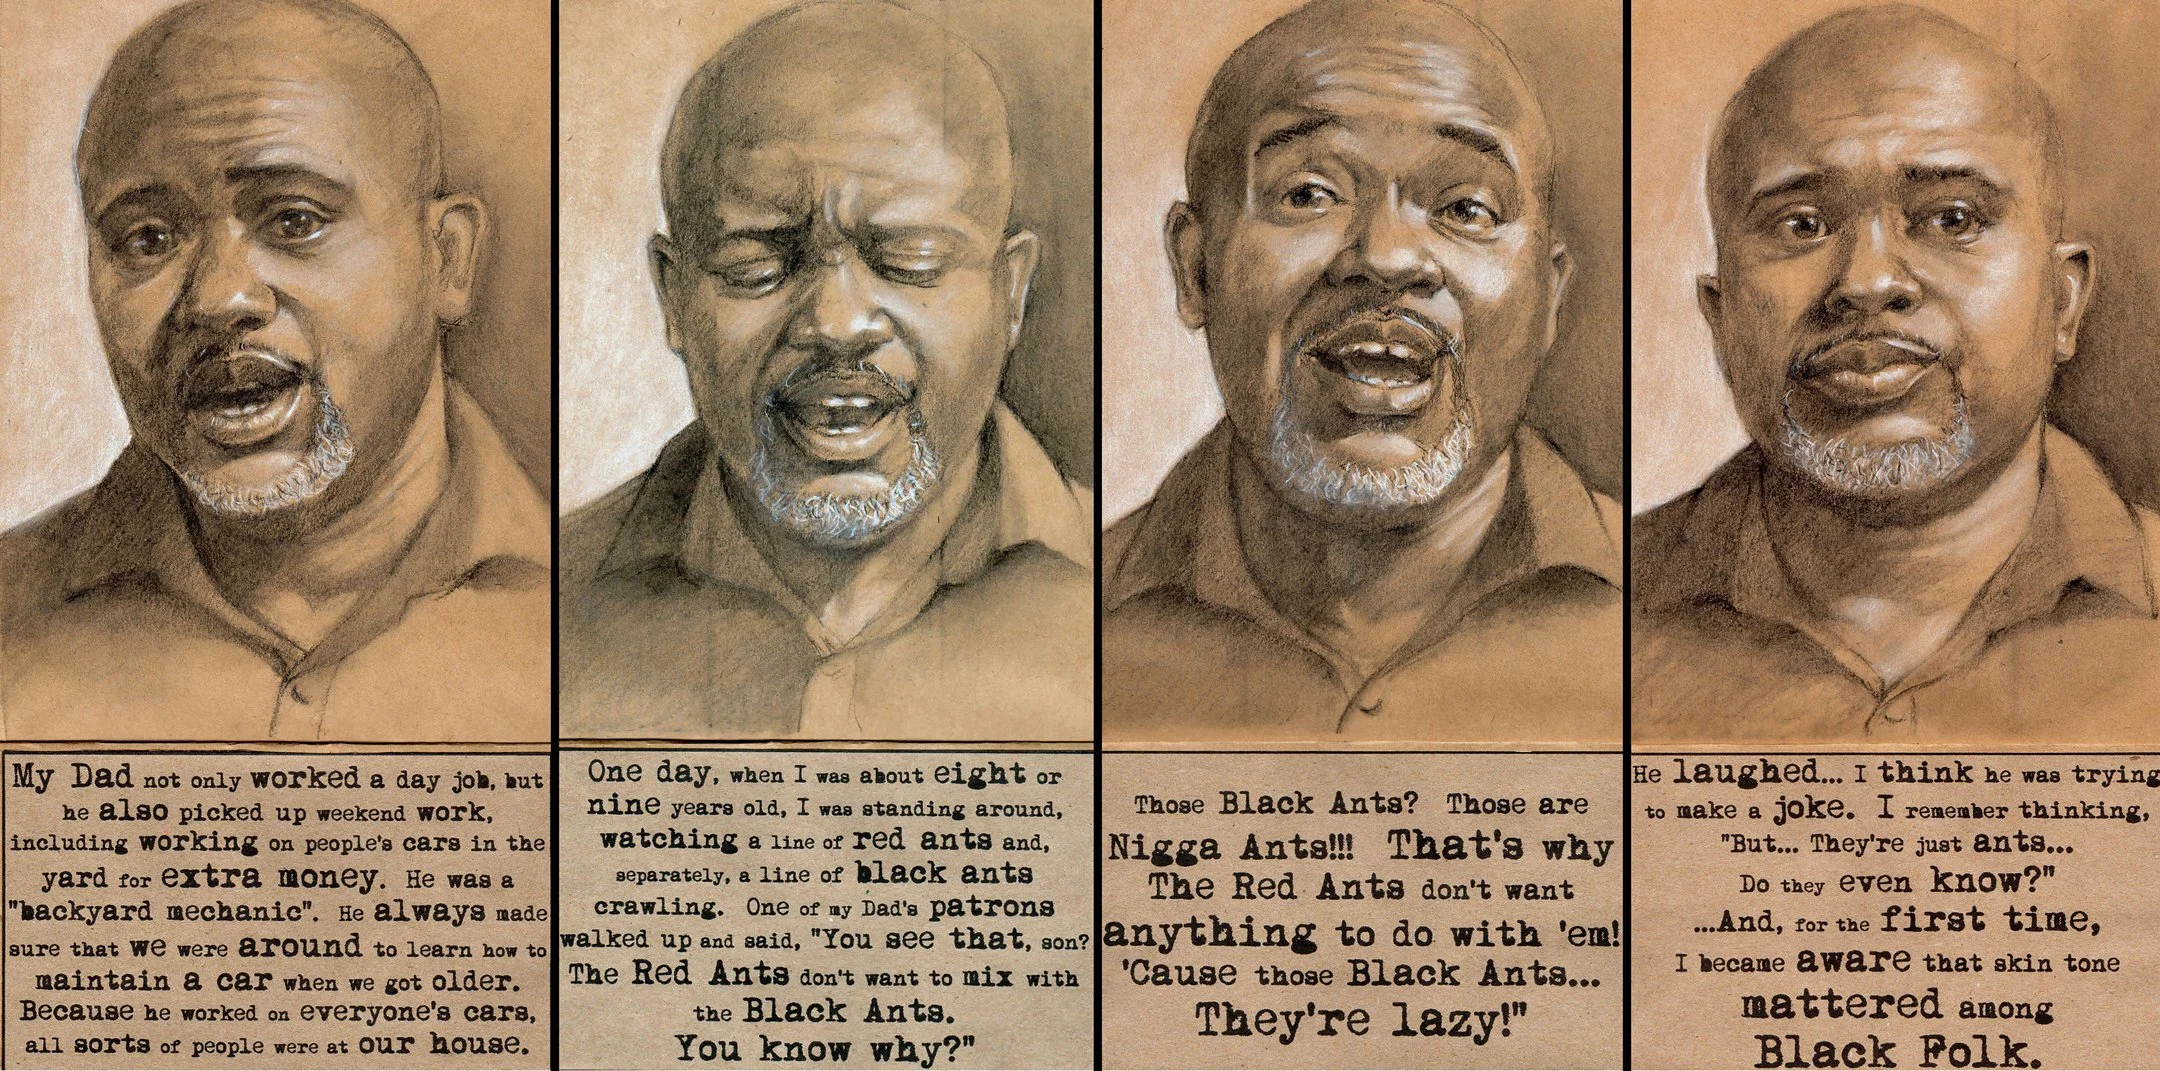 My Dad not only worked a day job, but
he also picked up weekend work,
including working on people's cars in the
yard for extra money. He was a
"backyard mechanic". He always made
sure that we were around to learn how to
maintain a car when we got older.
Because he worked on everyone's cars,
all sorts of people were at our house.
One day, when I was about eight or
nine years old, I was standing around,
watching a line of red ants and,
separately, a line of black ants
crawling. One of my Dad's patrons
walked up and said, "You see that, son?
The Red Ants don't want to mix with
the Black Ants.
You know why?"
Those Black Ants? Those are
Nigga Ants!!! That's why
The Red Ants don't want
anything to do with 'em!
'Cause those Black Ants...
They're lazy!"
He laughed... I think he was trying
to make a joke. I remember thinking,
"But... They're just ants...
Do they even know?"
...And, for the first time,
I became aware that skin tone
mattered among
Black Folk.